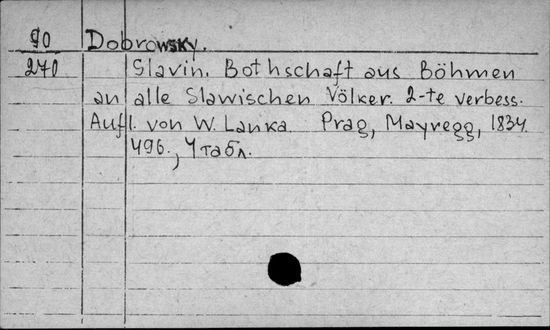 90 Dobrowsky.
270 Slavin. Bothschaft aus Böhmen
an alle Slawischen Völker. 2-te verbess.
Aufl. von W. Lanka. Prag, Mayregg, 1834.
496., 4 табл.